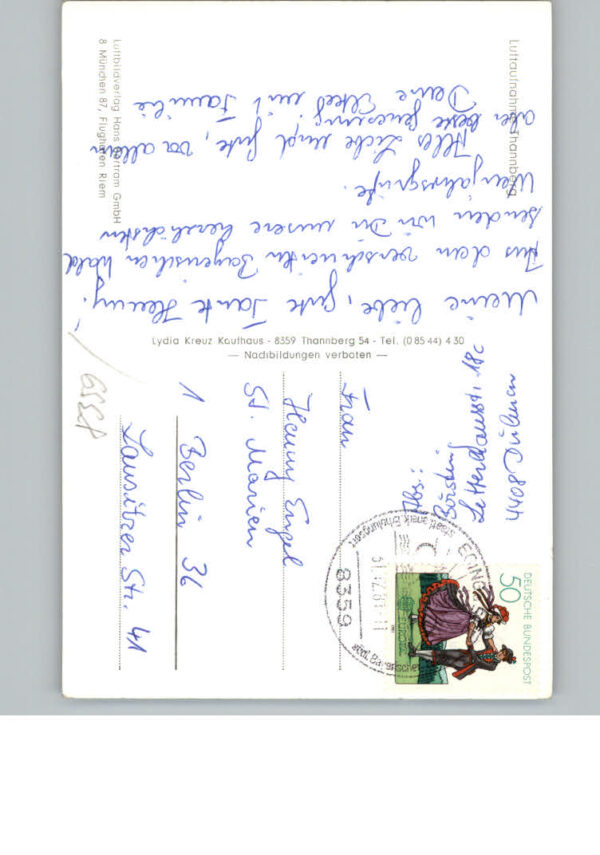 Luftaufnahme: Thannberg
Meine liebe, gute Tante Henny!
Aus dem verschneiten Bayerischen Wald
senden wir Dir unsere herzlichsten
Neujahrsgrüße.
Alles Liebe und Gute, vor allem
aber beste Genesung!
Deine Elke mit Familie
Luftbildverlag Hans Bertram GmbH
8 München 87, Flughafen Riem
Lydia Kreuz Kaufhaus - 8359 Thannberg 54 - Tel. (0 85 44) 4 30
— Nachbildungen verboten —
Abs.:
Börsting
Letterhausstr. 18c
4408 Dülmen
DEUTSCHE BUNDESPOST
50
8359
Frau
Henny Engel
St. Marien
1 Berlin 36
Lausitzer Str. 41